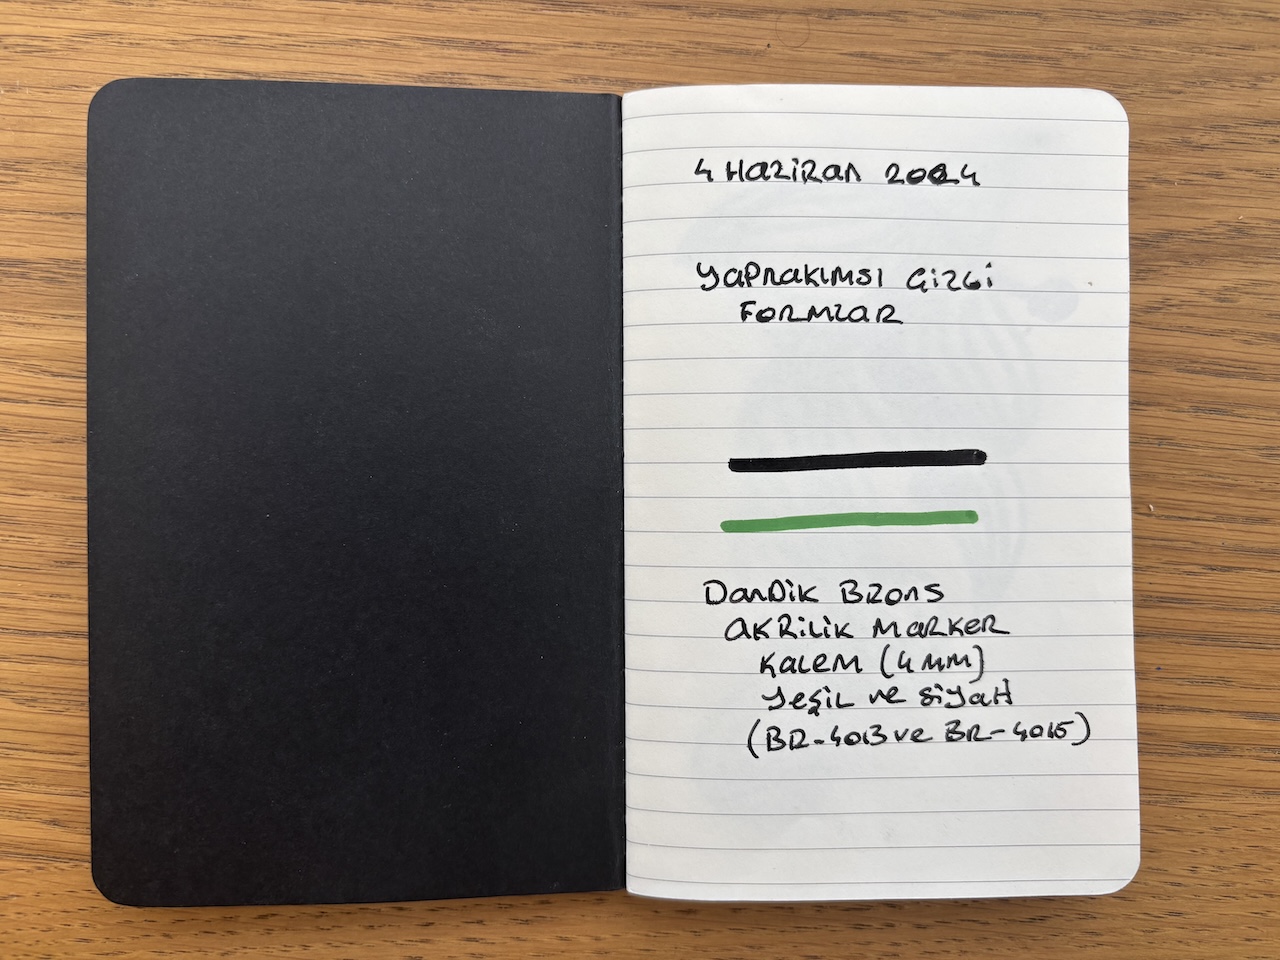 4 Haziran 2024
Yaprakımsı Çizgi
Formlar
Dandik Brons
Akrilik Marker
Kalem (4 mm)
Yeşil ve Siyah
(BR-4013 ve BR-4015)